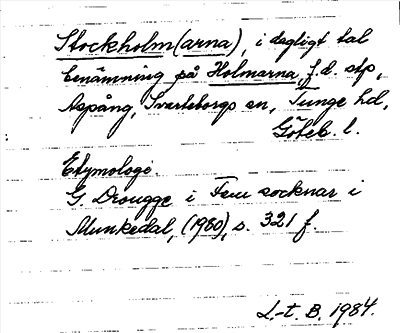 Stockholm(arna), i dagligt tal
benämning på Holmarna, f.d. stp,
Aspång, Svarteborgs sn, Tunge hd,
Göteb. l.
Etymologi.
G Drougge i Fem socknar i
Munkedal, (1980), s. 321 f.
L-t. B. 1984.